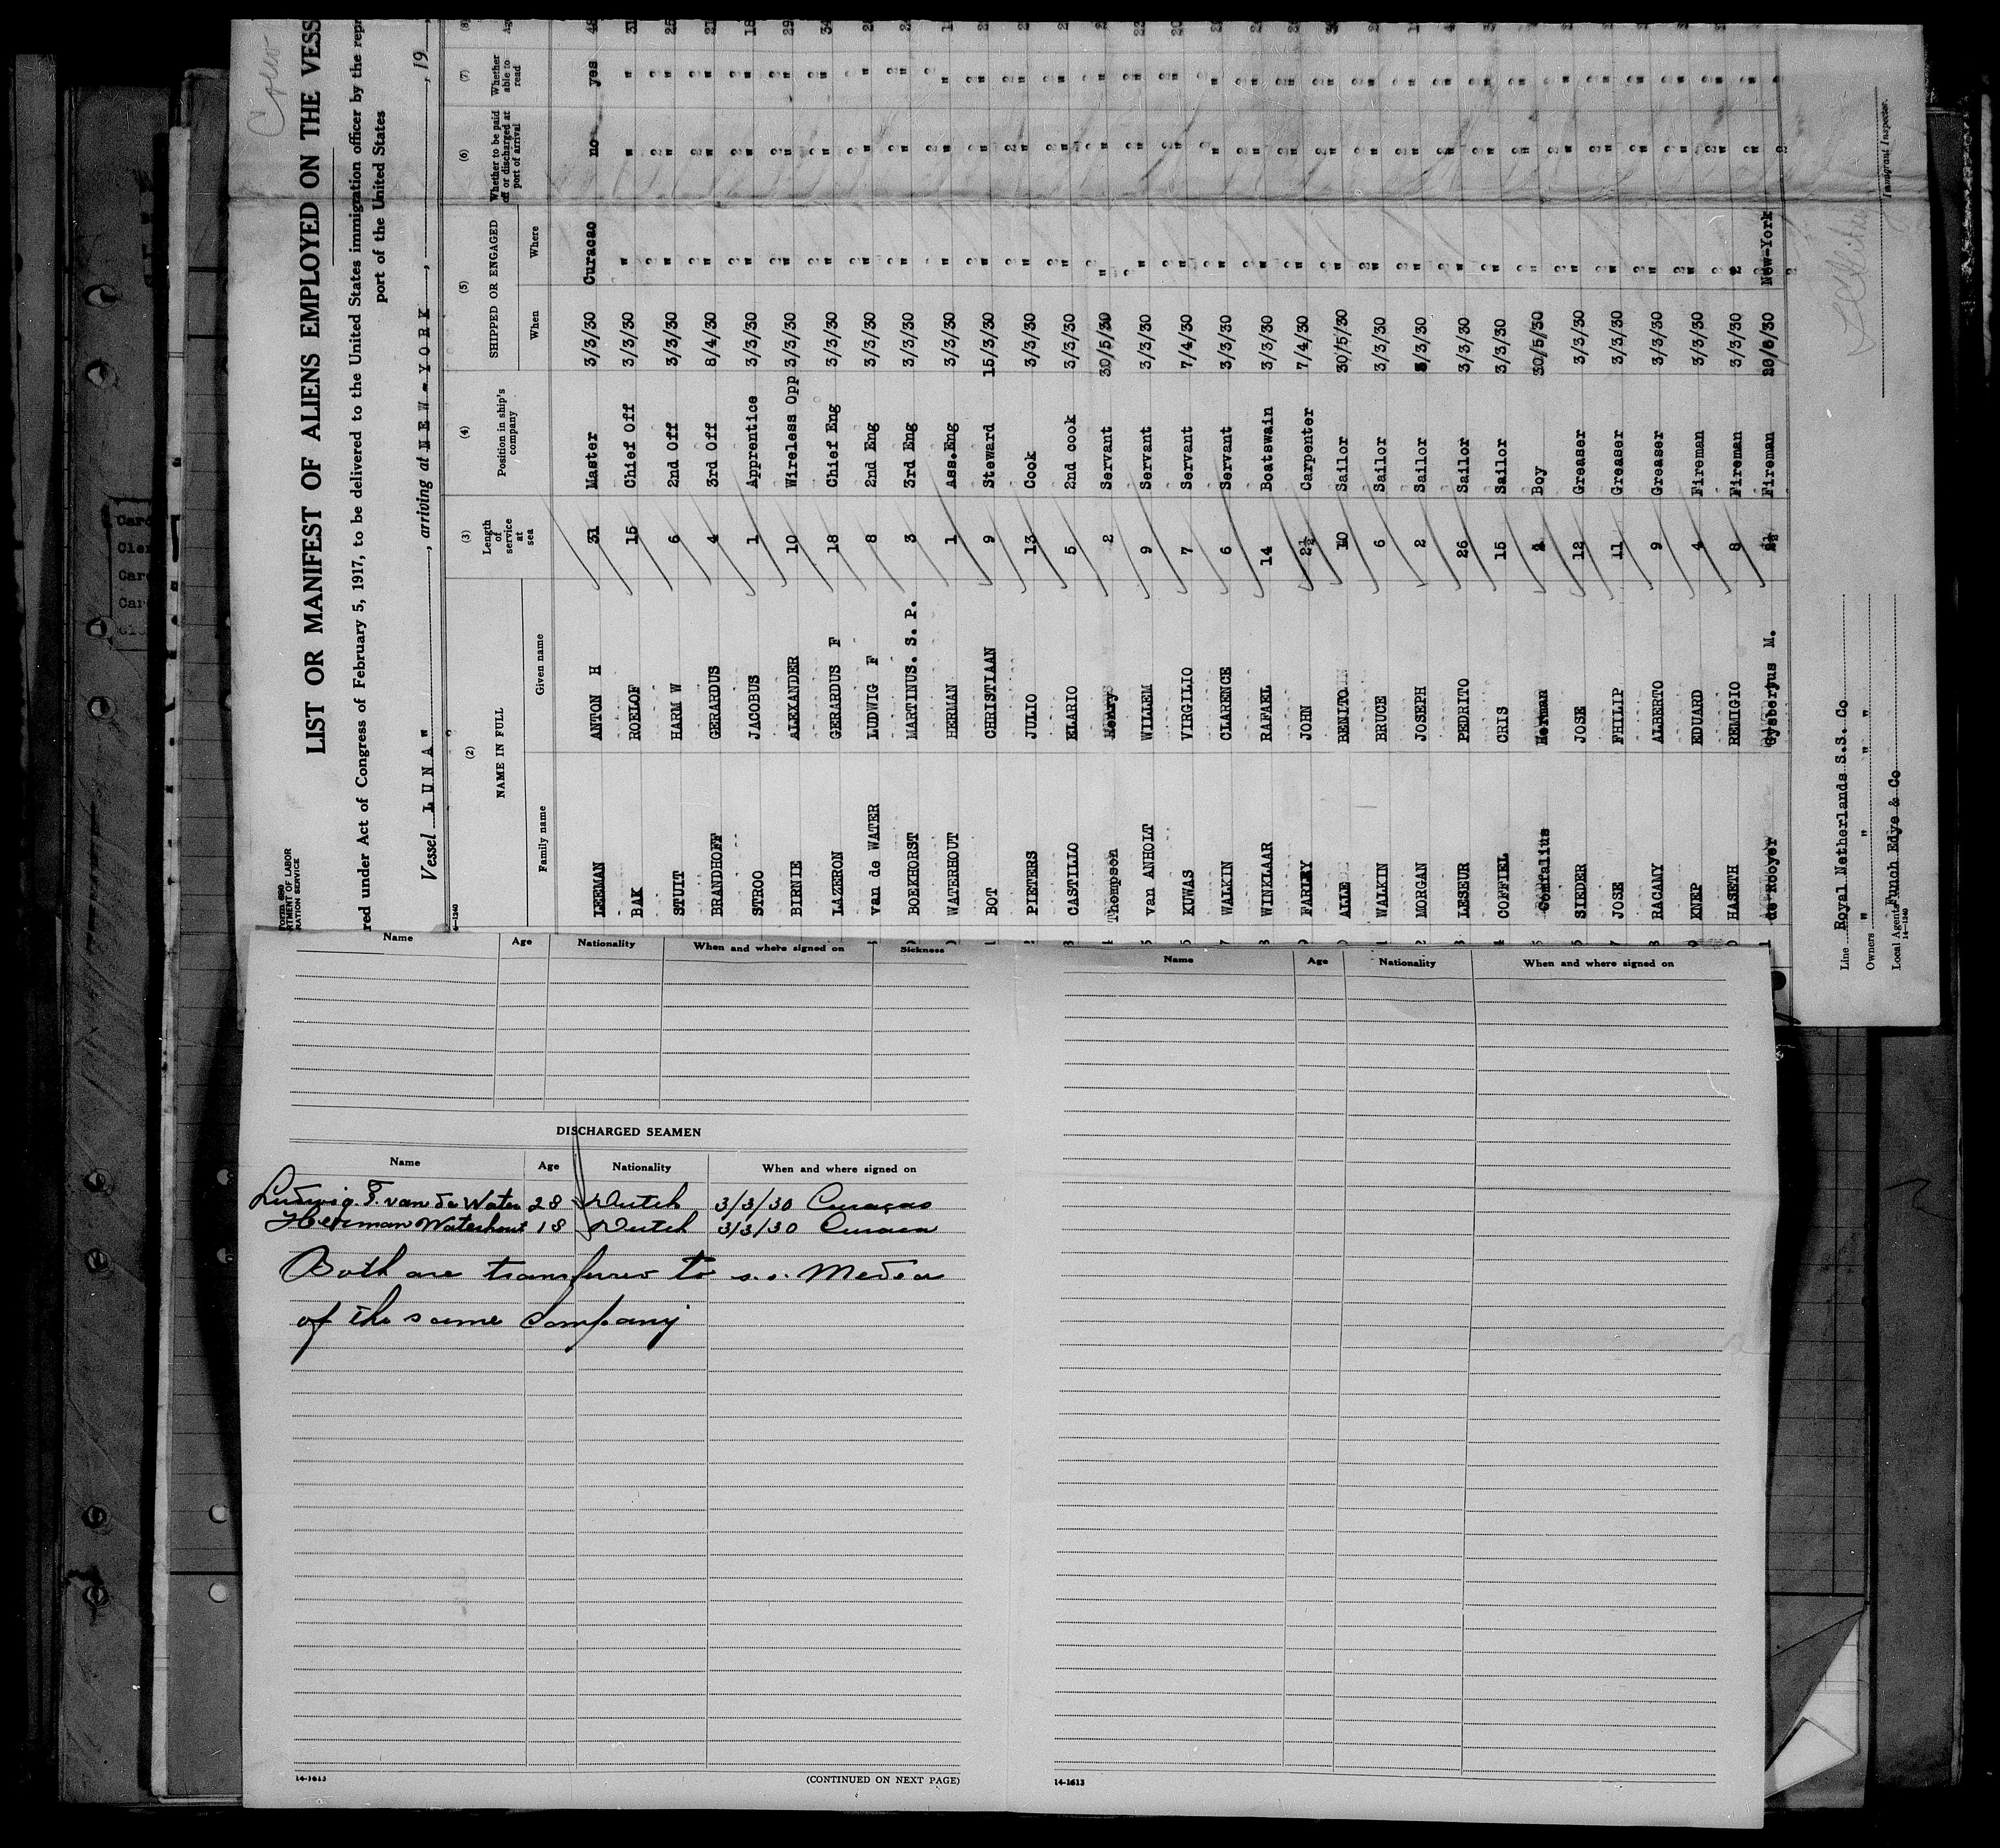 Crew
Form 680
LIST OR MANIFEST OF ALIENS EMPLOYED ON THE VESS
red under Act of Congress of February 5, 1917, to be delivered to the United States immigration officer by the repr
port of the United States
Vessel "LUNA", arriving at NEW-YORK, 19
14-1240
(2) (3) (4) (5) (6) (7) (8)
NAME IN FULL Length of service at sea Position in ship's company SHIPPED OR ENGAGED Whether to be paid off or discharged at port of arrival Whether able to read
Family name Given name When Where
LEEMAN ANTON H 31 Master 3/3/30 Curacao no yes
BAK ROELOF 15 Chief Off 3/3/30 " " "
STUIT HARM W 6 2nd Off 3/3/30 " " "
BRANDHOFF GERARDUS 4 3rd Off 8/4/30 " " "
STROO JACOBUS 1 Apprentice 3/3/30 " " "
BIRNIE ALEXANDER 10 Wireless Opp 3/3/30 " " "
LAZERON GERARDUS F 18 Chief Eng 3/3/30 " " "
van de WATER LUDWIG F 8 2nd Eng 3/3/30 " " "
BOEKHORST MARTINUS. S. P. 3 3rd Eng 3/3/30 " " "
WATERHOUT HERMAN 1 Ass.Eng 3/3/30 " " "
BOT CHRISTIAAN 9 Steward 15/3/30 " " "
PIETERS JULIO 13 Cook 3/3/30 " " "
CASTILLO ELARIO 5 2nd cook 3/3/30 " " "
Thompson Henry 2 Servant 30/5/30 " " "
van ANHOLT WILLEM 9 Servant 3/3/30 " " "
KUWAS VIRGILIO 7 Servant 7/4/30 " " "
WALKIN CLARENCE 6 Servant 3/3/30 " " "
WINKLAAR RAFAEL 14 Boatswain 3/3/30 " " "
FARLEY JOHN 2½ Carpenter 7/4/30 " " "
ALLE BENITO 10 Sailor 30/5/30 " " "
WALKIN BRUCE 6 Sailor 3/3/30 " " "
MORGAN JOSEPH 2 Sailor 3/3/30 " " "
LESEUR PEDRITO 26 Sailor 3/3/30 " " "
COFFIEL CRIS 15 Sailor 3/3/30 " " "
Comfalius Herman 2 Boy 30/5/30 " " "
SIEDER JOSE 12 Greaser 3/3/30 " " "
JOSE PHILIP 11 Greaser 3/3/30 " " "
RACAMY ALBERTO 9 Greaser 3/3/30 " " "
KNEP EDUARD 4 Fireman 3/3/30 " " "
HASETH REMIGIO 8 Fireman 3/3/30 " " "
de Rooyer Gysbertus M. 2½ Fireman 28/6/30 New-York " "
Line Royal Netherlands S.S. Co
Owners " " " "
Local Agents Funch Edye & Co
14-1240
Immigrant Inspector.
Name Age Nationality When and where signed on Sickness
DISCHARGED SEAMEN
Name Age Nationality When and where signed on
Ludwig. F. van de Water 28 Dutch 3/3/30 Curaçao
Herman Waterhout 18 Dutch 3/3/30 Curaca
Both are transferred to s.s. Medea
of the same Company
14-1613
(CONTINUED ON NEXT PAGE)
Name Age Nationality When and where signed on
14-1613